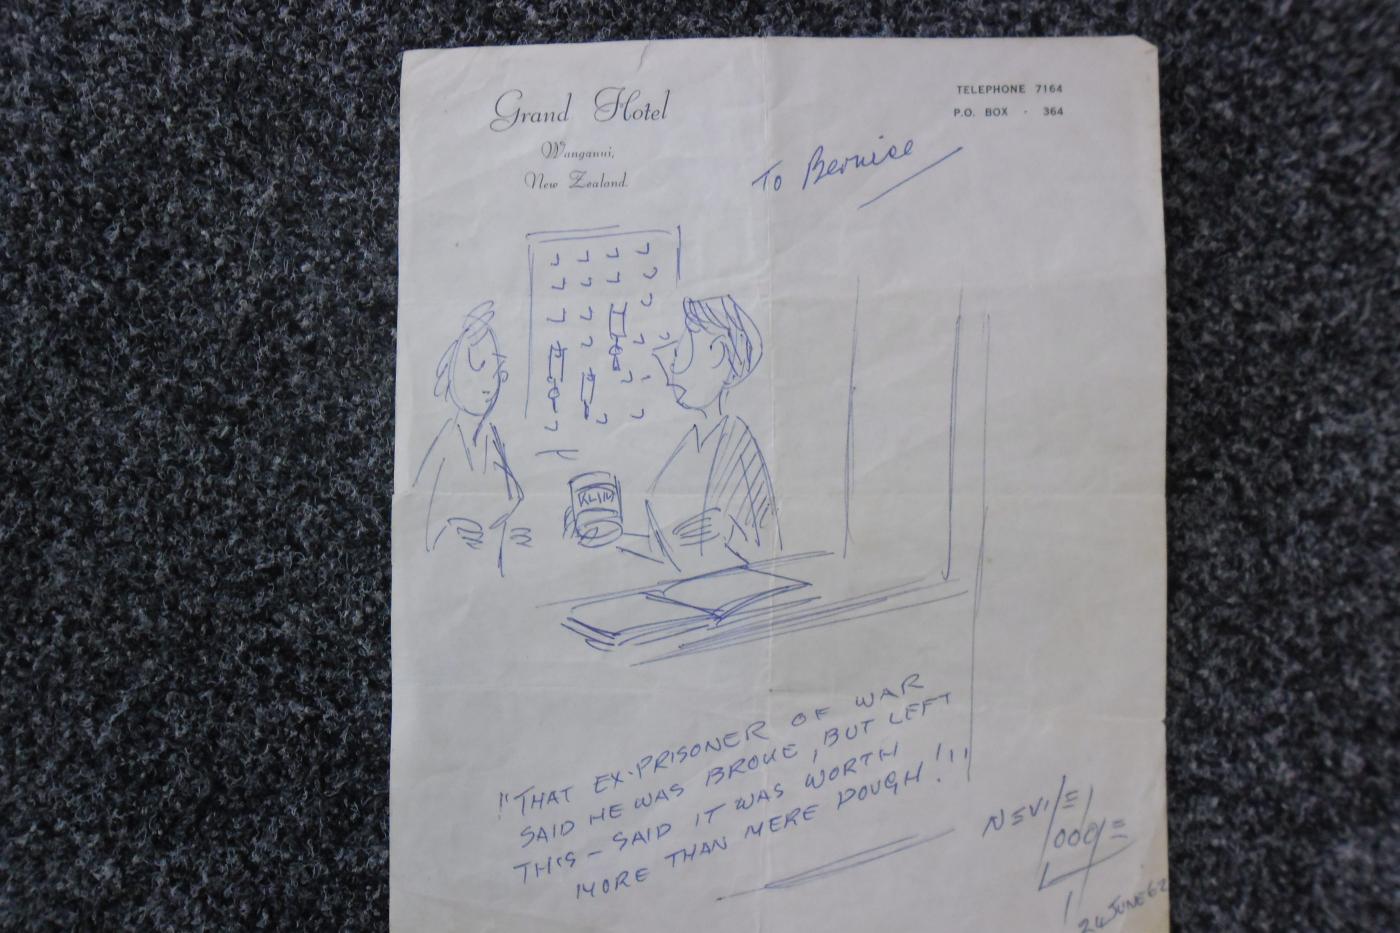 Grand Hotel
Wanganui,
New Zealand.
TELEPHONE 7164
P.O. BOX - 364
To Bernice
KLIM
"THAT EX-PRISONER OF WAR
SAID HE WAS BROKE, BUT LEFT
THIS - SAID IT WAS WORTH
MORE THAN MERE DOUGH!!!
NEVILE
LODGE
24 JUNE 62